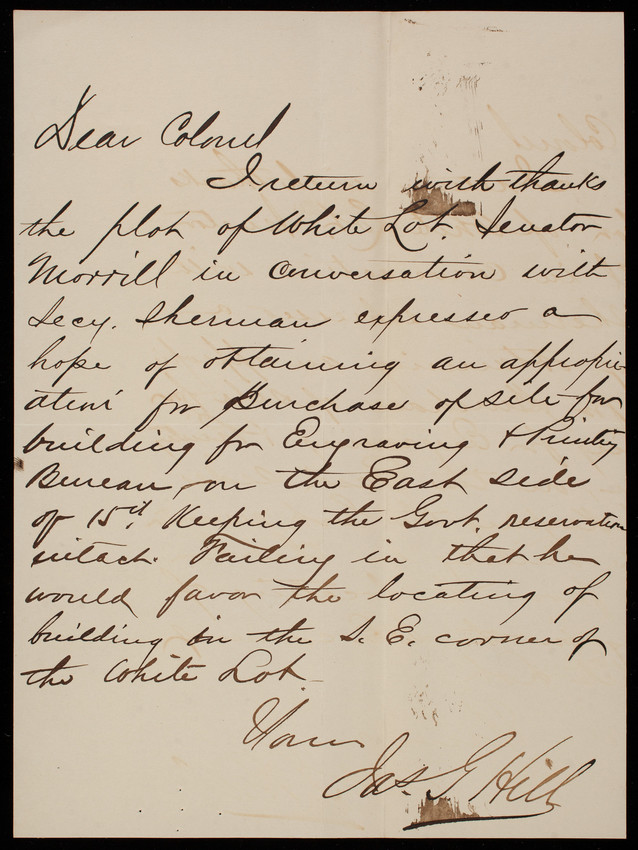 Dear Colonel
I return with thanks
the plot of White Lot. Senator
Morrill in conversation with
Secy. Sherman expresses a
hope of obtaining an appropri-
ation for Purchase of site for
building for Engraving & Printing
Bureau, on the East side
of 15th. Keeping the Govt. reservation
intact. Failing in that he
would favor the locating of
building in the S. E. corner of
the White Lot.
Yours
Jas. G Hill